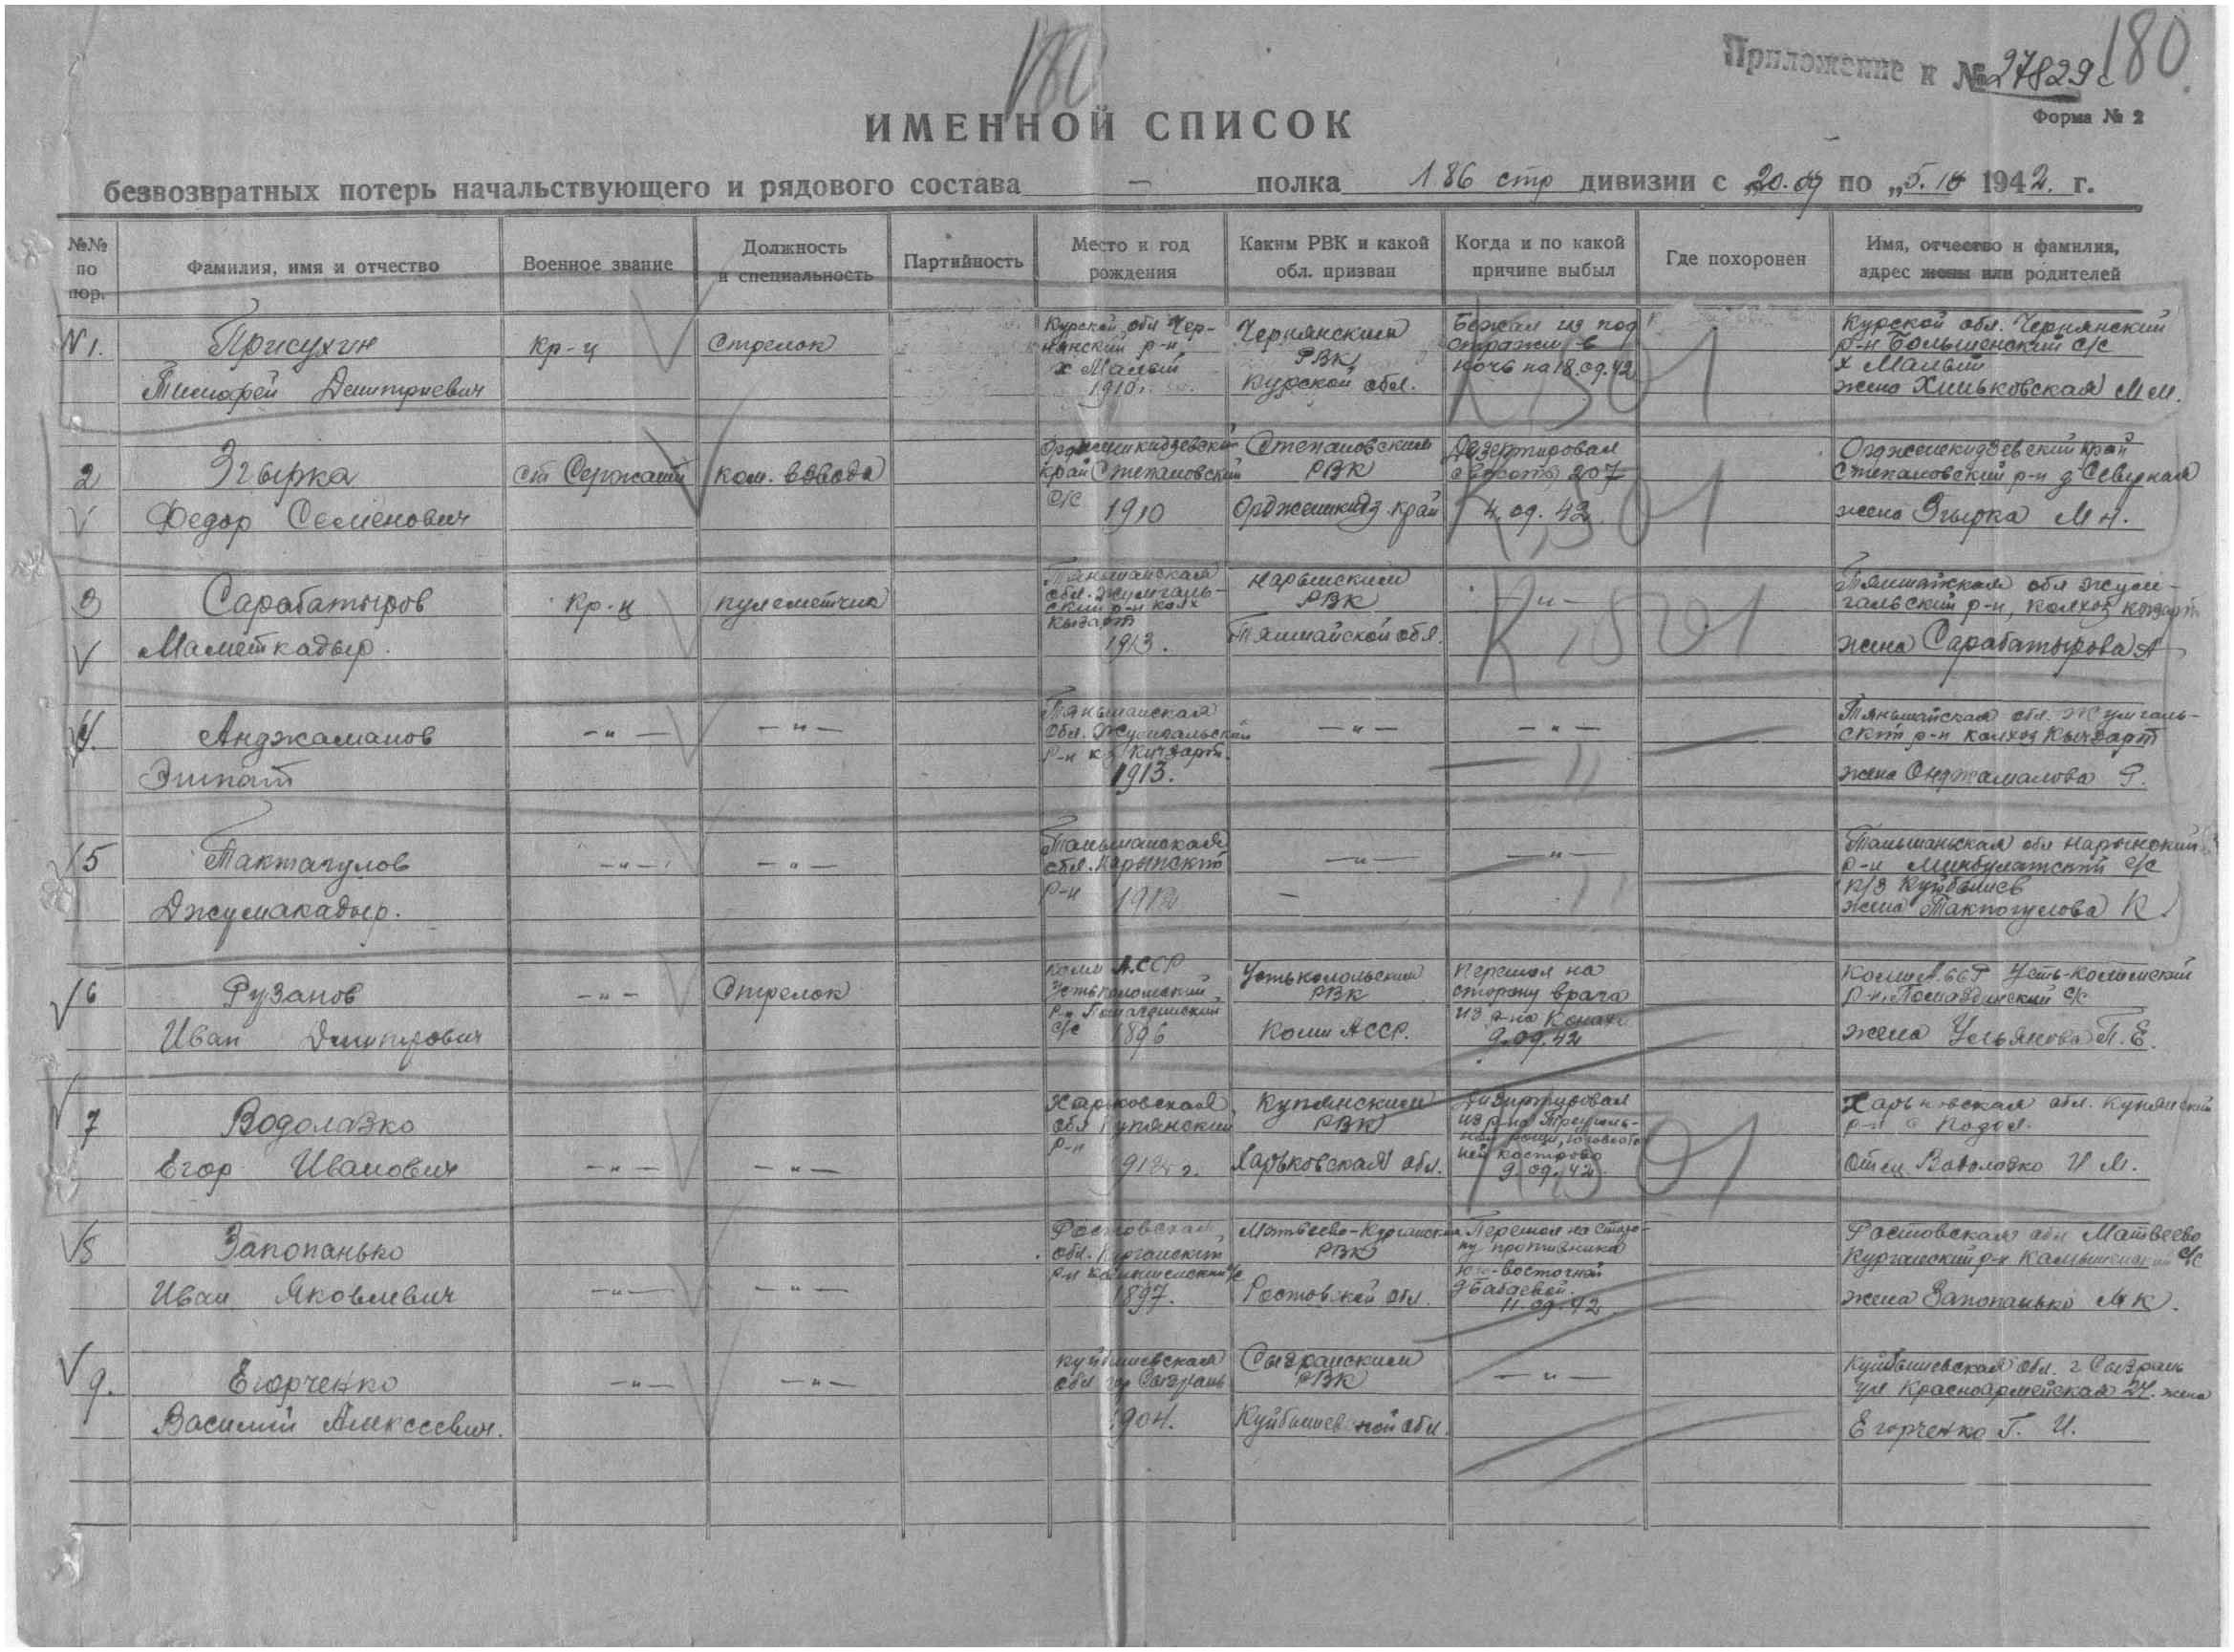 180
Приложение к № 27829с
180
Форма № 2
ИМЕННОЙ СПИСОК
безвозвратных потерь начальствующего и рядового состава — полка 186 стр дивизии с „20.09 по „5.10 1942. г.
№№ по пор.
Фамилия, имя и отчество
Военное звание
Должность и специальность
Партийность
Место и год рождения
Каким РВК и какой обл. призван
Когда и по какой причине выбыл
Где похоронен
Имя, отчество и фамилия, адрес жены или родителей
N 1.
Присухин
Тимофей Дмитриевич
Кр-ц
Стрелок
Курской обл Чер-
нянский р-н
х Малый
1910г.
Чернянским
РВК
Курской обл.
Бежал из под
стражи в
ночь на 18.09.42
К,301
Курской обл. Чернянский
р-н с/с
х Малый
жена Хмыковская М М.
2
Згырка
Федор Семенович
ст Сержант
ком. взвода
Орджоникидзевский
край Степановский
с/с
1910
Степановским
РВК
Орджоникидз. край
Дезертировал
с высоты 207
4.09.42
К,301
Орджоникидзевский край
Степановский р-н д Северная
жена Згырка М Н.
3
Сарабатыров
Маметкадыр.
Кр-ц
пулеметчик
Тяньшанская
обл. Жумгаль-
ский р-н колх
Кызарт
1913.
Нарынским
РВК
Тяншайской обл.
—"—
обл Жумгальский р-н, колхоз
жена Сарабатырова А
4.
Анджаманов
Эшпат
—"—
—"—
Тяньшанская
обл. Жумгальский
р-н
1913.
—"—
—"—
Тяньшайская обл. Жумгаль-
ский р-н колхоз
жена Онджамалова
5
Тактагулов
Джумакадыр.
—"—
—"—
обл. Нарынский
р-н
1912
—"—
—
—"—
обл Нарынский
р-н с/с
к/з Куйбышев
жена К.
6
Рузанов
Иван Дмитрович
—"—
Стрелок
Коми АССР
р-н
с/с 1896
РВК
Коми АССР.
Перешол на
сторону врага
из р-на
9.09.42
Усть-Коломский
р-н, Помаздинский с/с
жена Ульянова П. Е.
7
Водолазко
Егор Иванович
—"—
—"—
Харьковская
обл Купянский
р-н
Купянским
РВК
Харьковская обл.
Дизиртировал
из р-на
9.09.42
К,301
Харьковская обл. Купянский
р-н с Подол.
отец Водолазко И М.
8
Запопанько
Иван Яковлевич
—"—
—"—
Ростовская
обл. Курганский
р-н с/с
1897.
Матвеево-Курганским
РВК
Ростовской обл.
Перешол на сторо-
ну противника
юго-восточней
д Бабаевой.
11.09.42
Ростовская обл Матвеево
Курганский р-н с/с
жена Запопанько М К.
9.
Егорченко
Василий Алексеевич.
—"—
—"—
Куйбышевская
обл гор Сызрань
1904.
Сызранским
РВК
Куйбышевской обл.
—"—
Куйбышевская обл. г Сызрань
ул Красноармейская 24. жена
Егорченко Г. И.